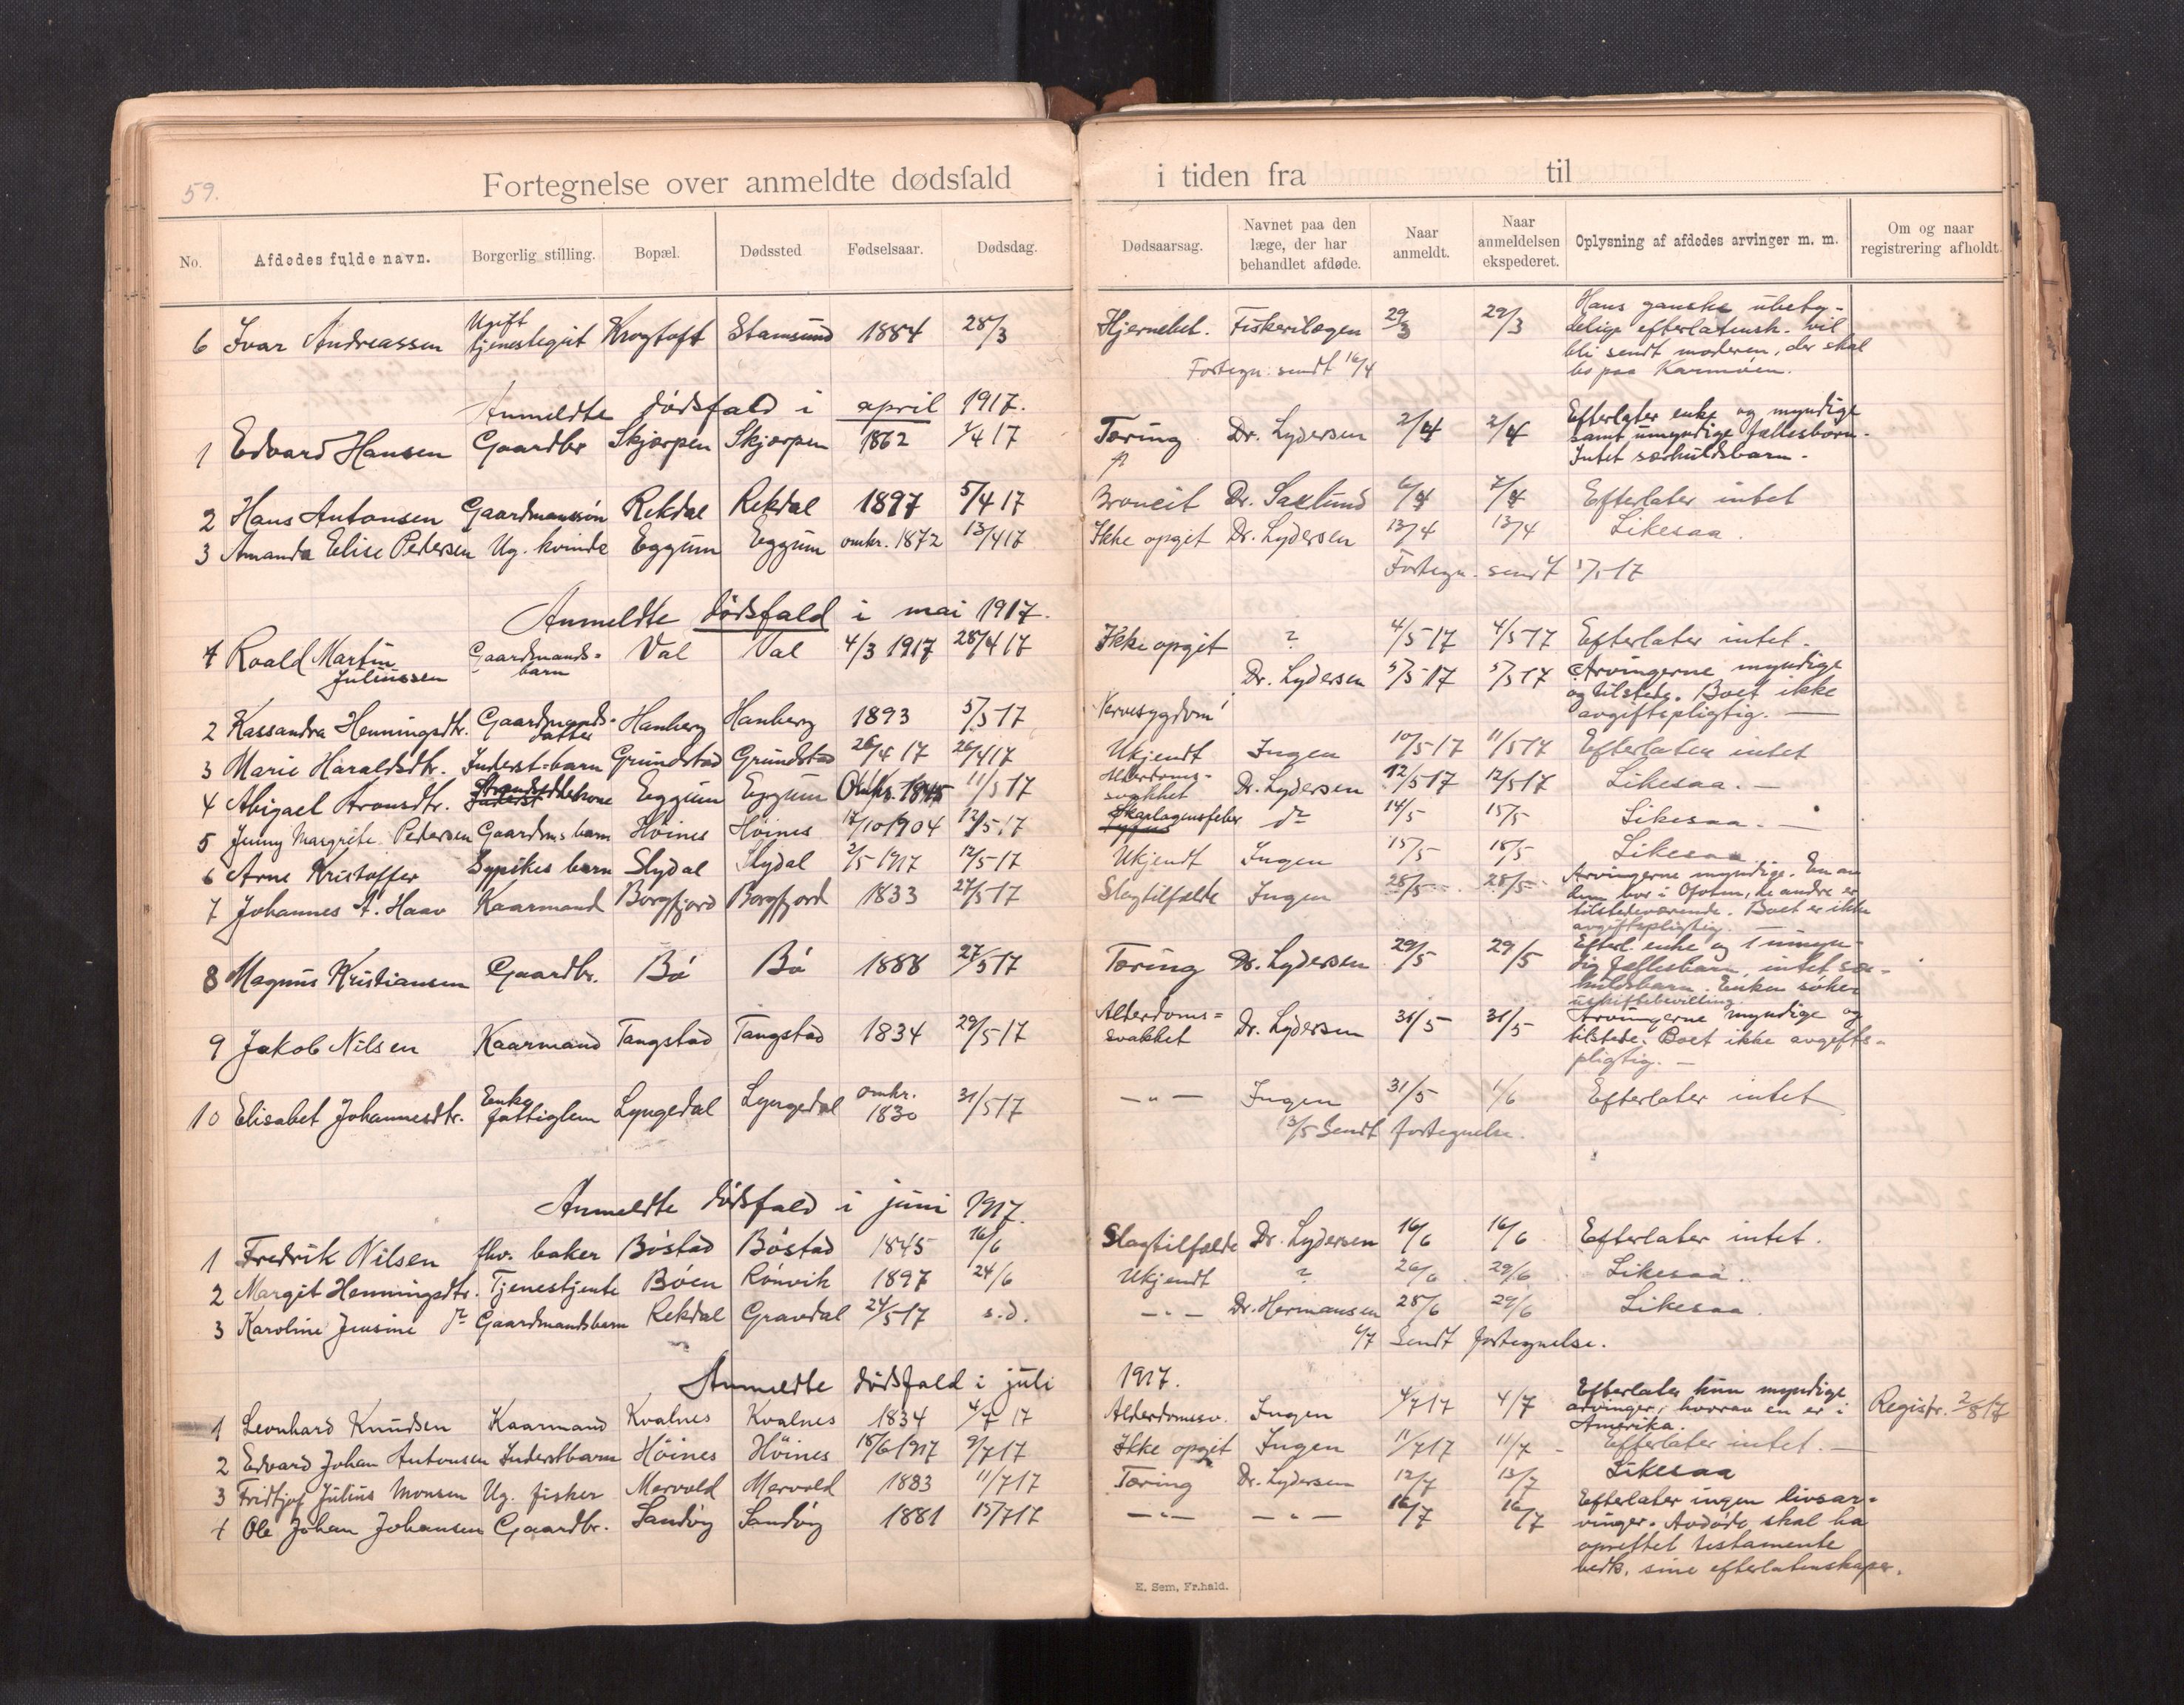 59.
Fortegnelse over anmeldte dødsfald i tiden fra til
No. Afdødes fulde navn. Borgerlig stilling. Bopæl. Dødssted Fødselsaar. Dødsdag. Dødsaarsag. Navnet paa den læge, der har behandlet afdøde. Naar anmeldt. Naar anmeldelsen ekspederet. Oplysning af afdødes arvinger m. m. Om og naar registrering afholdt.
6 Ivar Andreassen Ugift tjenestegut Krogtoft Stamsund 1884 28/3 Hjernebet. Fiskerilægen 29/3 29/3 Hans ganske ubety-
delige efterlatensk. vil
bli sendt moderen, der skal
bo paa Karmøen.
Fortegn. sendt 16/4
Anmeldte dødsfald i april 1917.
1 Edvard Hansen Gaardbr Skjærpen Skjærpen 1862 1/4 17 Tæring Dr. Lydersen 2/4 2/4 Efterlater enke og myndige
samt umyndige fællesbørn.
Intet særkuldsbarn.
2 Hans Antonsen Gaardmannsøn Rekdal Rekdal 1897 5/4 17 Broncit Dr. Saxlund 6/4 7/4 Efterlater intet
3 Amanda Elise Pedersen Ug. kvinde Eggum Eggum omkr. 1872 13/4 17 Ikke opget Dr. Lydersen 13/4 13/4 Likesaa.
Fortegn. sendt 1/5 17
Anmeldte dødsfald i mai 1917.
1 Roald Martin Juliussen Gaardmands-barn Val Val 4/3 1917 28/4 17 Ikke opget ? 4/5 17 4/5 17 Efterlater intet.
2 Kassandra Henningsdtr. Gaardmands-datter Hanberg Hanberg 1893 5/5 17 Nervesygdom Dr. Lydersen 5/5 17 5/5 17 Arvingerne myndige
og tilstede. Boet ikke
avgiftspligtig. —
3 Marie Haraldsdtr. Inderst-barn Grundstad Grundstad 26/4 17 26/4 17 Ukjendt Ingen 10/5 17 11/5 17 Efterlater intet
4 Abigael Aronsdtr. Eggum Eggum Omkr. 1845 11/5 17 Alderdoms-svakhet Dr. Lydersen 12/5 17 12/5 17 Likesaa. —
5 Jenny Margrete Pedersen Gaardms barn Höines Höines 17/10 1904 12/5 17 Skarlagensfeber do 14/5 15/5 Likesaa. —
6 Arne Kristoffer Sypikes barn Slydal Slydal 2/5 1917 12/5 17 Ukjendt Ingen 15/5 15/5 Likesaa
7 Johannes A. Haav Kaarmand Borgfjord Borgfjord 1833 27/5 17 Slagtilfælde Ingen 28/5 28/5 Arvingerne myndige. En av
dem bor i Ofoten, de andre er
tilstedeværende. Boet er ikke
avgiftspligtig.
8 Magnus Kristiansen Gaardbr. Bö Bö 1888 27/5 17 Tæring Dr. Lydersen 29/5 29/5 Efterl. enke og 1 umyn-
dig fællesbarn, intet sær-
kuldsbarn. Enken söker
uskiftebevilling.
9 Jakob Nilsen Kaarmand Tangstad Tangstad 1834 29/5 17 Alderdoms=svakhet Dr. Lydersen 31/5 31/5 Arvingerne myndige og
tilstede. Boet ikke avgifts-
pligtig. —
10 Elisabet Johannesdtr. Enke fattiglem Lyngedal Lyngedal omkr. 1830 31/5 17 — " — Ingen 31/5 1/6 Efterlater intet
13/5 Sendt fortegnelse.
Anmeldte dødsfald i juni 1917.
1 Fredrik Nilsen fhv. baker Böstad Böstad 1845 16/6 Slagtilfælde Dr. Lydersen 16/6 16/6 Efterlater intet.
2 Margit Henningsdtr. Tjenestjente Böen Rönvik 1897 24/6 Ukjendt ? 26/6 29/6 Likesaa.
3 Karoline Jensine Gaardmandsbarn Rekdal Gravdal 24/5 17 s.d. — " — Dr. Hermansen 28/6 29/6 Likesaa.
6/7 Sendt fortegnelse.
Anmeldte dødsfald i juli 1917.
1 Leonhard Knudsen Kaarmand Kvalnes Kvalnes 1834 4/7 17 Alderdomssv. Ingen 4/7 17 4/7 Efterlater kun myndige
arvinger, hvorav en er i
Amerika. Registr. 2/8 17
2 Edvard Johan Antonsen Inderstbarn Höines Höines 18/6 1917 9/7 17 Ikke opgit Ingen 11/7 17 11/7 Efterlater intet. —
3 Fridtjof Julius Monsen Ug. fisker Mervold Mervold 1883 11/7 17 Tæring Dr. Lydersen 12/7 13/7 Likesaa
4 Ole Johan Johansen Gaardbr. Sandöy Sandöy 1881 15/7 17 — " — — " — 16/7 16/7 Efterlater ingen livsar-
vinger. Avdöde skal ha
oprettet testamente
vedk. sine efterlatenskaper.
E. Sem, Fr.hald.